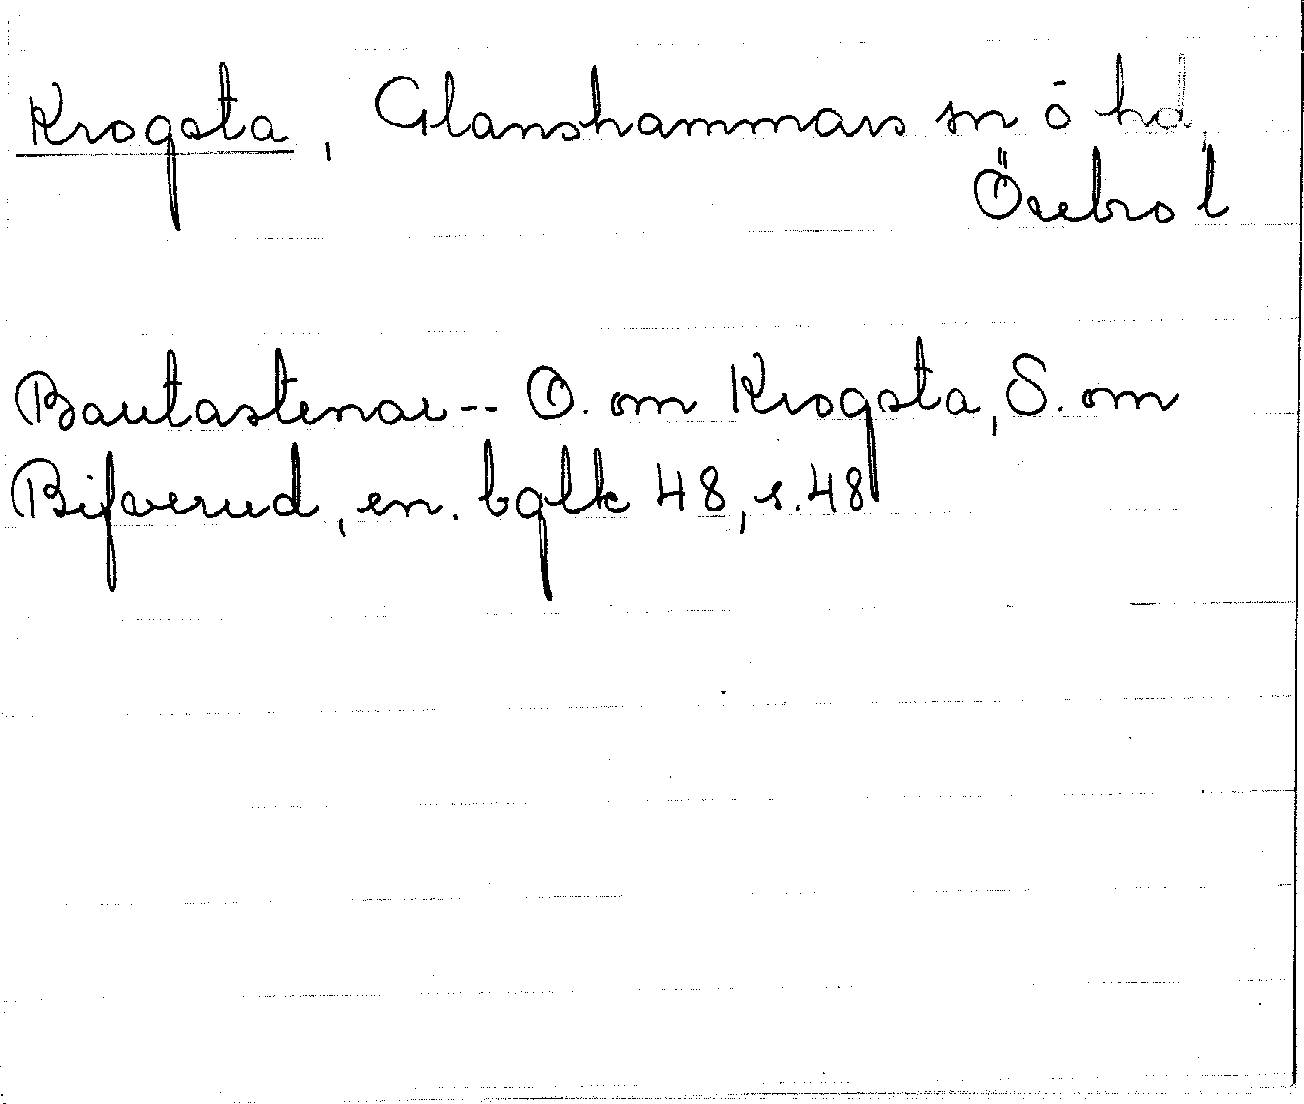 Krogsta, Glanshammars sn ō hd,
Örebro l
Bautastenar -- O. om Krogsta, S. om
Bifverud, en. bglk 48, s. 48